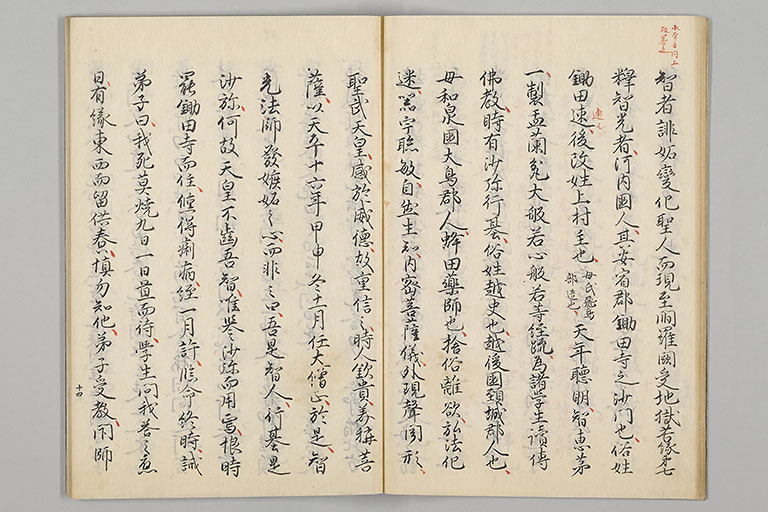 智者誹妬變化聖人而現至閻羅闕受地獄苦縁第七
釋智光者河内國人其安宿郡鋤田寺之沙門也俗姓
連
鋤田速後改姓上村主也母氏飛鳥部造也天年聰明智惠第
一製盂蘭瓫大般若心般若等經疏為諸學生讀傳
佛教時有沙弥行基俗姓越史也越後國頚城郡人也
母和泉國大鳥郡人蜂田藥師也捨俗離欲弘法化
迷器宇聰敏自然生知内密菩薩儀外現聲聞形
聖武天皇感於威德故重信之時人欽貴美稱菩
薩以天平十六年甲申冬十一月任大僧正於是智
光法師發嫉妬之心而非之曰吾是智人行基是
沙弥何故天皇不齒吾智唯譽沙弥而用焉恨時
罷鋤田寺而住儵得痢病經一月許臨命終時誡
弟子曰我死莫燒九日一日置而待學生問我答之應
曰有縁東西而留供養慎勿知他弟子受教閇師
十四